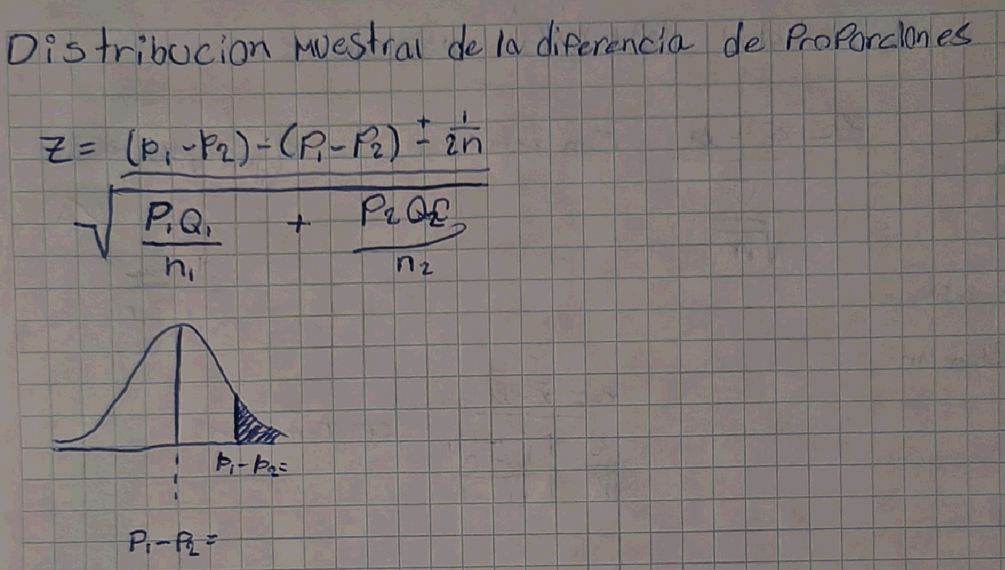 Distribucion Muestral de la diferencia de Proporciones
z = (p₁ - p₂) - (P₁ - P₂) ± 1/2n
√ P₁Q₁/n₁ + P₂Q₂/n₂
p₁ - p₂ =
P₁ - P₂ =